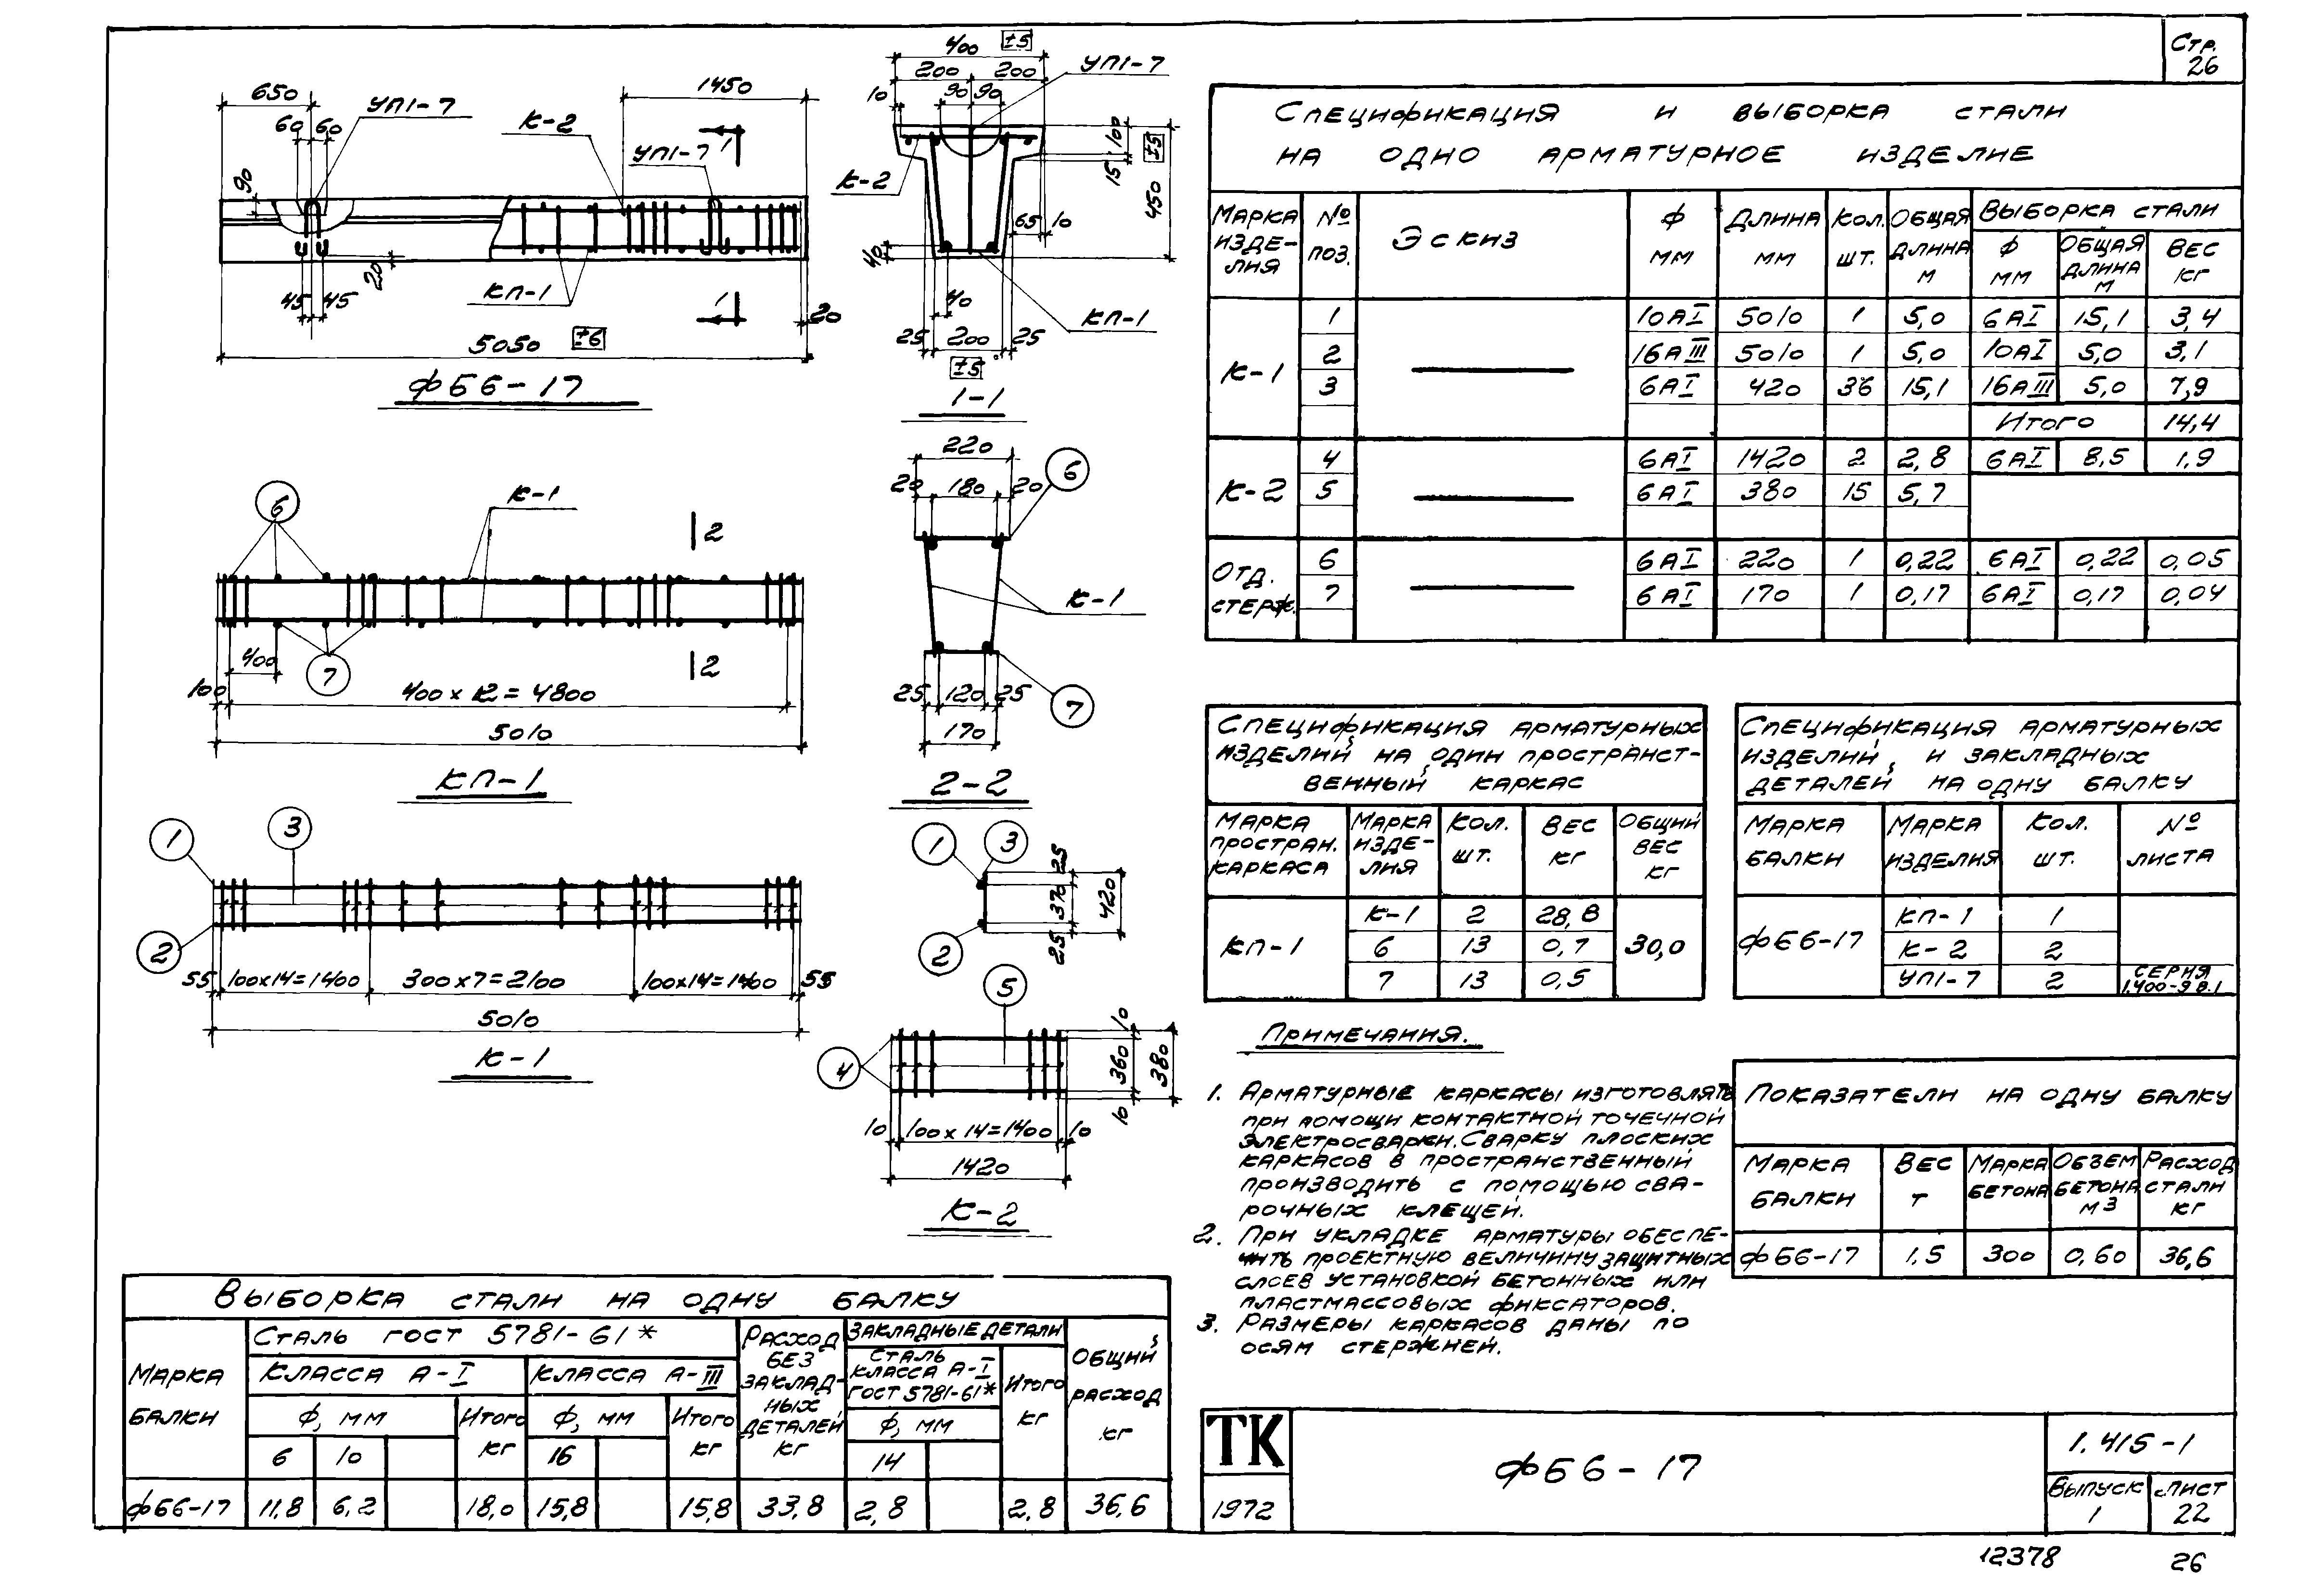 Стр.
26
650
60 60
УП1-7
К-2
1450
УП1-7
1
90
45 45
20
КП-1
1
20
5050 ±6
ФБ6-17
400 ±5
200 200
УП1-7
10
90 90
100
15
±5
450
К-2
65 10
40
40
КП-1
25 200 25
±5
1-1
6
К-1
2
400
7
2
100
400 х 12 = 4800
5010
КП-1
220
20 180 20
6
К-1
25 120 25
7
170
2-2
1
3
2
55 100х14=1400 300х7=2100 100х14=1400 55
5010
К-1
1
3
25
370
420
25
2
5
4
10
360
380
10
10 100х14=1400 10
1420
К-2
Спецификация и выборка стали
на одно арматурное изделие
Марка изде-лия № поз. Эскиз Ф мм Длина мм Кол. шт. Общая длина м Выборка стали
Ф мм Общая длина м Вес кг
К-1
1 10АI 5010 1 5,0 6АI 15,1 3,4
2 16АIII 5010 1 5,0 10АI 5,0 3,1
3 6АI 420 36 15,1 16АIII 5,0 7,9
Итого 14,4
К-2
4 6АI 1420 2 2,8 6АI 8,5 1,9
5 6АI 380 15 5,7
Отд. стерж.
6 6АI 220 1 0,22 6АI 0,22 0,05
7 6АI 170 1 0,17 6АI 0,17 0,04
Спецификация арматурных
изделий на один пространст-
венный каркас
Марка простран. каркаса Марка изде-лия Кол. шт. Вес кг Общий вес кг
КП-1
К-1 2 28,8
6 13 0,7 30,0
7 13 0,5
Спецификация арматурных
изделий и закладных
деталей на одну балку
Марка балки Марка изделия Кол. шт. № листа
ФБ6-17
КП-1 1
К-2 2
УП1-7 2 Серия 1.400-9 в.1
Примечания.
1. Арматурные каркасы изготовлять
при помощи контактной точечной
электросварки. Сварку плоских
каркасов в пространственный
производить с помощью сва-
рочных клещей.
2. При укладке арматуры обеспе-
чить проектную величину защитных
слоев установкой бетонных или
пластмассовых фиксаторов.
3. Размеры каркасов даны по
осям стержней.
Показатели на одну балку
Марка балки Вес т Марка бетона Объем бетона м3 Расход стали кг
ФБ6-17 1,5 300 0,60 36,6
Выборка стали на одну балку
Марка балки Сталь ГОСТ 5781-61* Расход без заклад-ных деталей кг Закладные детали Общий расход кг
Класса А-I Класса А-III Сталь класса А-I ГОСТ 5781-61* Итого кг
Ф, мм Итого кг Ф, мм Итого кг Ф, мм
6 10 16 14
ФБ6-17 11,8 6,2 18,0 15,8 15,8 33,8 2,8 2,8 36,6
ТК
1972
ФБ6-17
1.415-1
Выпуск 1
Лист 22
12378
26